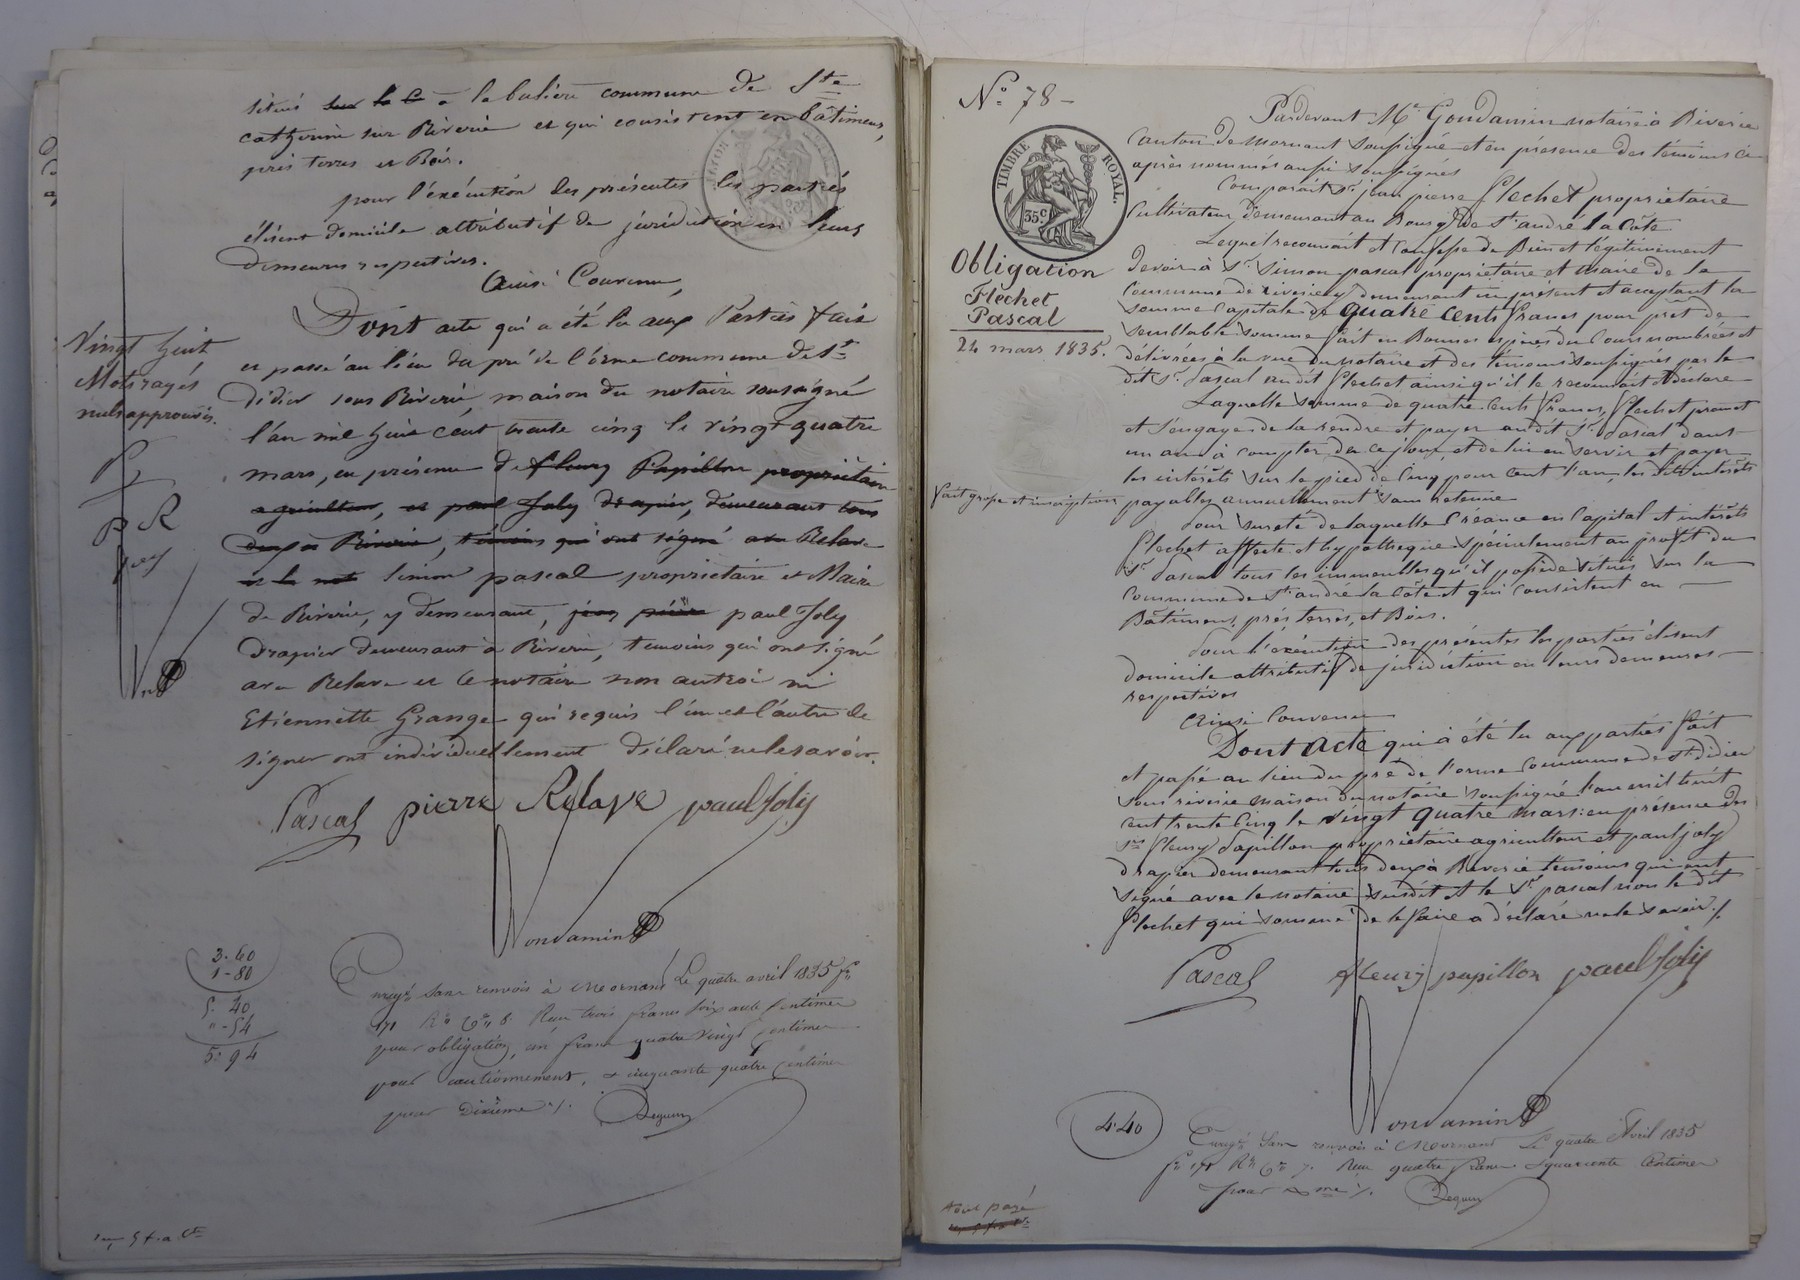 situés sur le C à la balière commune de Ste
catherine sur Riverie et qui consistent en bâtimens,
prés terres et Bois.
pour l'exécution des présentes les parties
élisent domicile attributif de juridiction en leurs
demeures respectives.
Ainsi Convenu,
Dont acte qui a été lu aux Parties fait
et passé au lieu du pré de l'orme commune de St
Didier sous Riverie, maison du notaire soussigné
l'an mil huit cent trente cinq le vingt quatre
mars, en présence de fleury Papillon propriétaire
agriculteur, et paul Joly drapier, demeurant tous
deux à Riverie, témoins qui ont signé avec Relave
et le not Simon pascal propriétaire et Maire
de Riverie, y demeurant, jean pierre paul Joly
drapier demeurant à Riverie, temoins qui ont signé
avec Relave et le notaire non autroi ni
Etiennette Grange qui requis l'un et l'autre de
signer ont individuellement déclaré ne le savoir.
Vingt huit
Mots rayés
nuls approuvés.
P
P R
Pascal pierre Relave paul Joly
Gondamin
3.60
1-80
5.40
"-54
5.94
Enregé sans renvois à Mornant Le quatre avril 1835 fo
171 Ro Ces 6 Reçu trois francs soixante centimes
pour obligation, un franc quatre vingt centimes
pour cautionnement, & cinquante quatre centimes
pour Dixième ./.
No 78 -
TIMBRE ROYAL.
35c
Obligation
Flechet
Pascal
24 mars 1835.
fait grosse et inscription
Pardevant Me Gondamin notaire à Riverie
Canton de Mornant soussigné et en présence des témoins ci
après nommés aussi soussignés
Comparait sr jean pierre flechet propriétaire
Cultivateur demeurant au Bourg de St andré la Côte
Lequel reconnait et Confesse de Bien et légitimement
devoir à Sr Simon pascal propriétaire et maire de la
Commune de riverie y demeurant ici présent et acceptant la
somme Capitale de quatre cents francs pour prêt de
semblable somme fait en Bonnes espèces du Cours nombrées et
délivrées à la vue du notaire et des témoins soussignés par le
dit Sr Pascal au dit flechet ainsi qu'il le reconnait et déclare
Laquelle Somme de quatre Cents francs, flechet promet
et s'engage de la rendre et payer au dit Sr Pascal dans
un an à compter de ce jour, et de lui en servir et payer
les intérêts sur le pied de Cinq pour cent l'an, les dits intérêts
payables annuellement sans retenue
Pour sureté de laquelle Créance en Capital et intérêts
flechet affecte et hypothèque spécialement au profit du
Sr Pascal tous les immeubles qu'il possède situés sur la
Commune de St andré la Côte et qui Consistent en
Bâtimens, prés, terres, et Bois.
Pour l'exécution des présentes les parties élisent
domicile attributif de juridiction en leurs demeures
respectives
Ainsi Convenu
Dont Acte qui a été lu aux parties fait
et passé au lieu du pré de l'orme Commune de St didier
sous riverie maison du notaire soussigné l'an mil huit
cent trente Cinq le vingt quatre mars en présence des
srs fleury Papillon propriétaire agriculteur et paul joly
drapier demeurant tous deux à Riverie temoins qui ont
signé avec le notaire susdit et le Sr pascal non le dit
flechet qui sommé de le faire a déclaré ne le savoir ./.
Pascal fleury papillon paul Joly
Gondamin
4.40
Enregé Sans renvois à Mornant Le quatre Avril 1835
fo 171 Ro Ces 7. Reçu quatre francs quarante centimes
pour